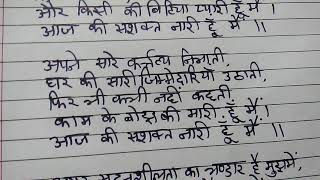 और किसी की बिटिया प्यारी हूँ मैं ।
आज की सशक्त नारी हूँ मैं ।
अपने सारे कर्त्तव्य निभाती,
घर की सारी जिम्मेदारियाँ उठाती,
फिर भी कभी नहीं कहती,
काम के बोझ की मारी हूँ मैं।
आज की सशक्त नारी हूँ मैं ।।
सहनशीलता का भण्डार है मुझमें,